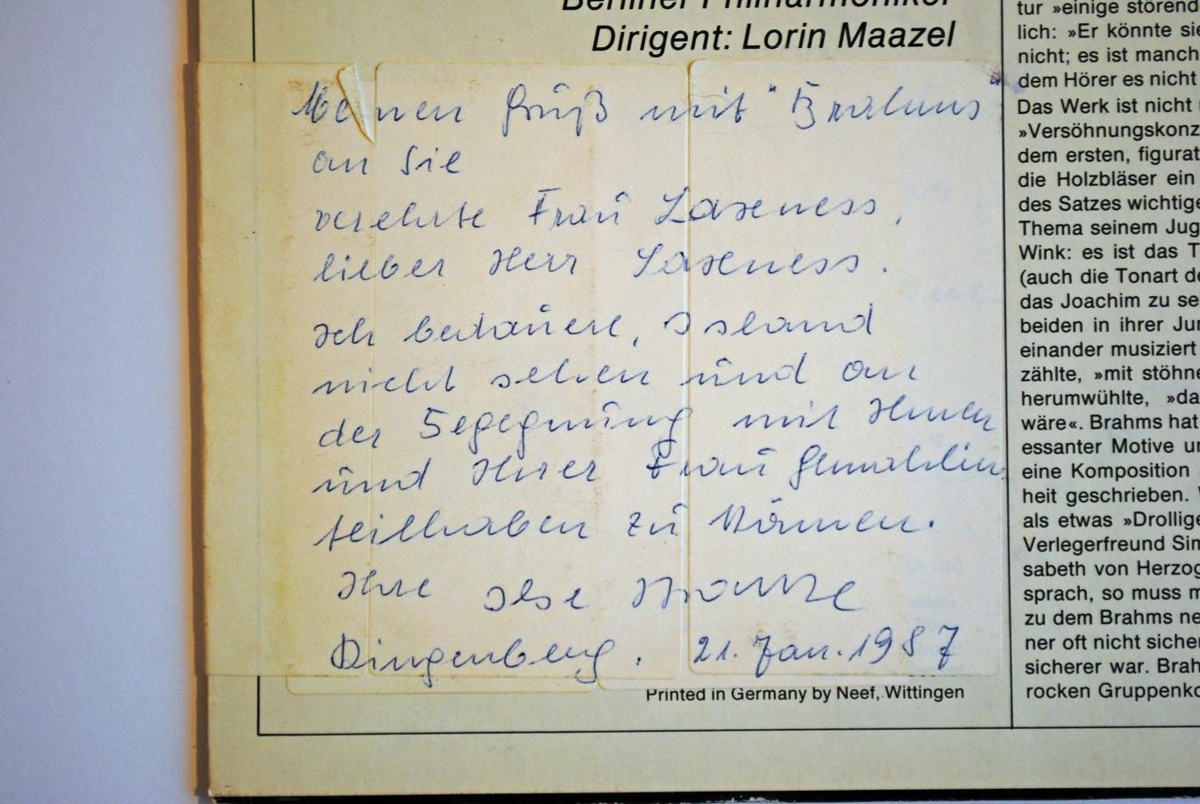 Berliner Philharmoniker
Dirigent: Lorin Maazel
Meinen Gruß mit "Brahms"
an Sie
verehrte Frau Laxness,
lieber Herr Laxness.
Ich bedauere, Island
nicht sehen und an
der Begegnung mit Ihnen
und Ihrer Frau Gemahlin
teilhaben zu können.
Ihre Ilse
Dingenberg. 21. Jan. 1987
Printed in Germany by Neef, Wittingen
tur »einige störend
lich: »Er könnte sie
nicht; es ist manch
dem Hörer es nicht
Das Werk ist nicht
»Versöhnungskonz
dem ersten, figurat
die Holzbläser ein
des Satzes wichtige
Thema seinem Jug
Wink: es ist das T
(auch die Tonart de
das Joachim zu se
beiden in ihrer Jun
einander musiziert
zählte, »mit stöhne
herumwühlte, »da
wäre«. Brahms hat
essanter Motive un
eine Komposition
heit geschrieben.
als etwas »Drollige
Verlegerfreund Sim
sabeth von Herzog
sprach, so muss m
zu dem Brahms ne
ner oft nicht sicher
sicherer war. Brah
rocken Gruppenko